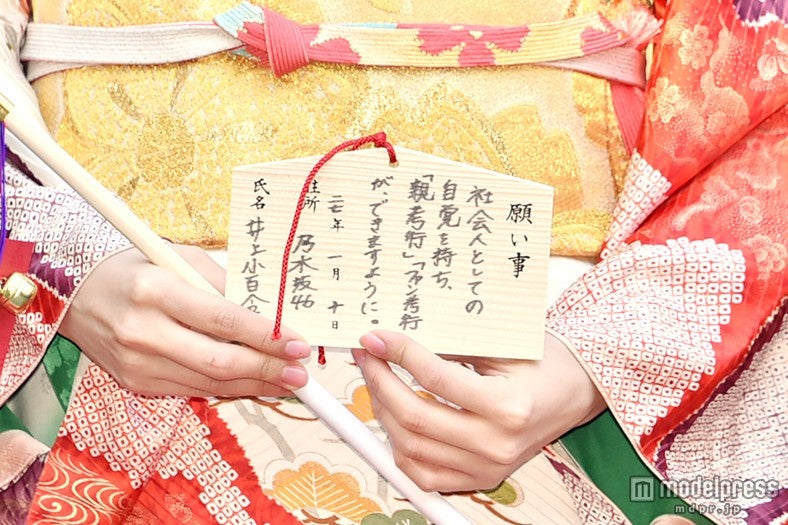 願い事
社会人としての
自覚を持ち、
「親孝行」「ファン孝行」
が、できますように。
二七年 一月 十日
住所 乃木坂46
氏名 井上小百合
modelpress
mdpr.jp